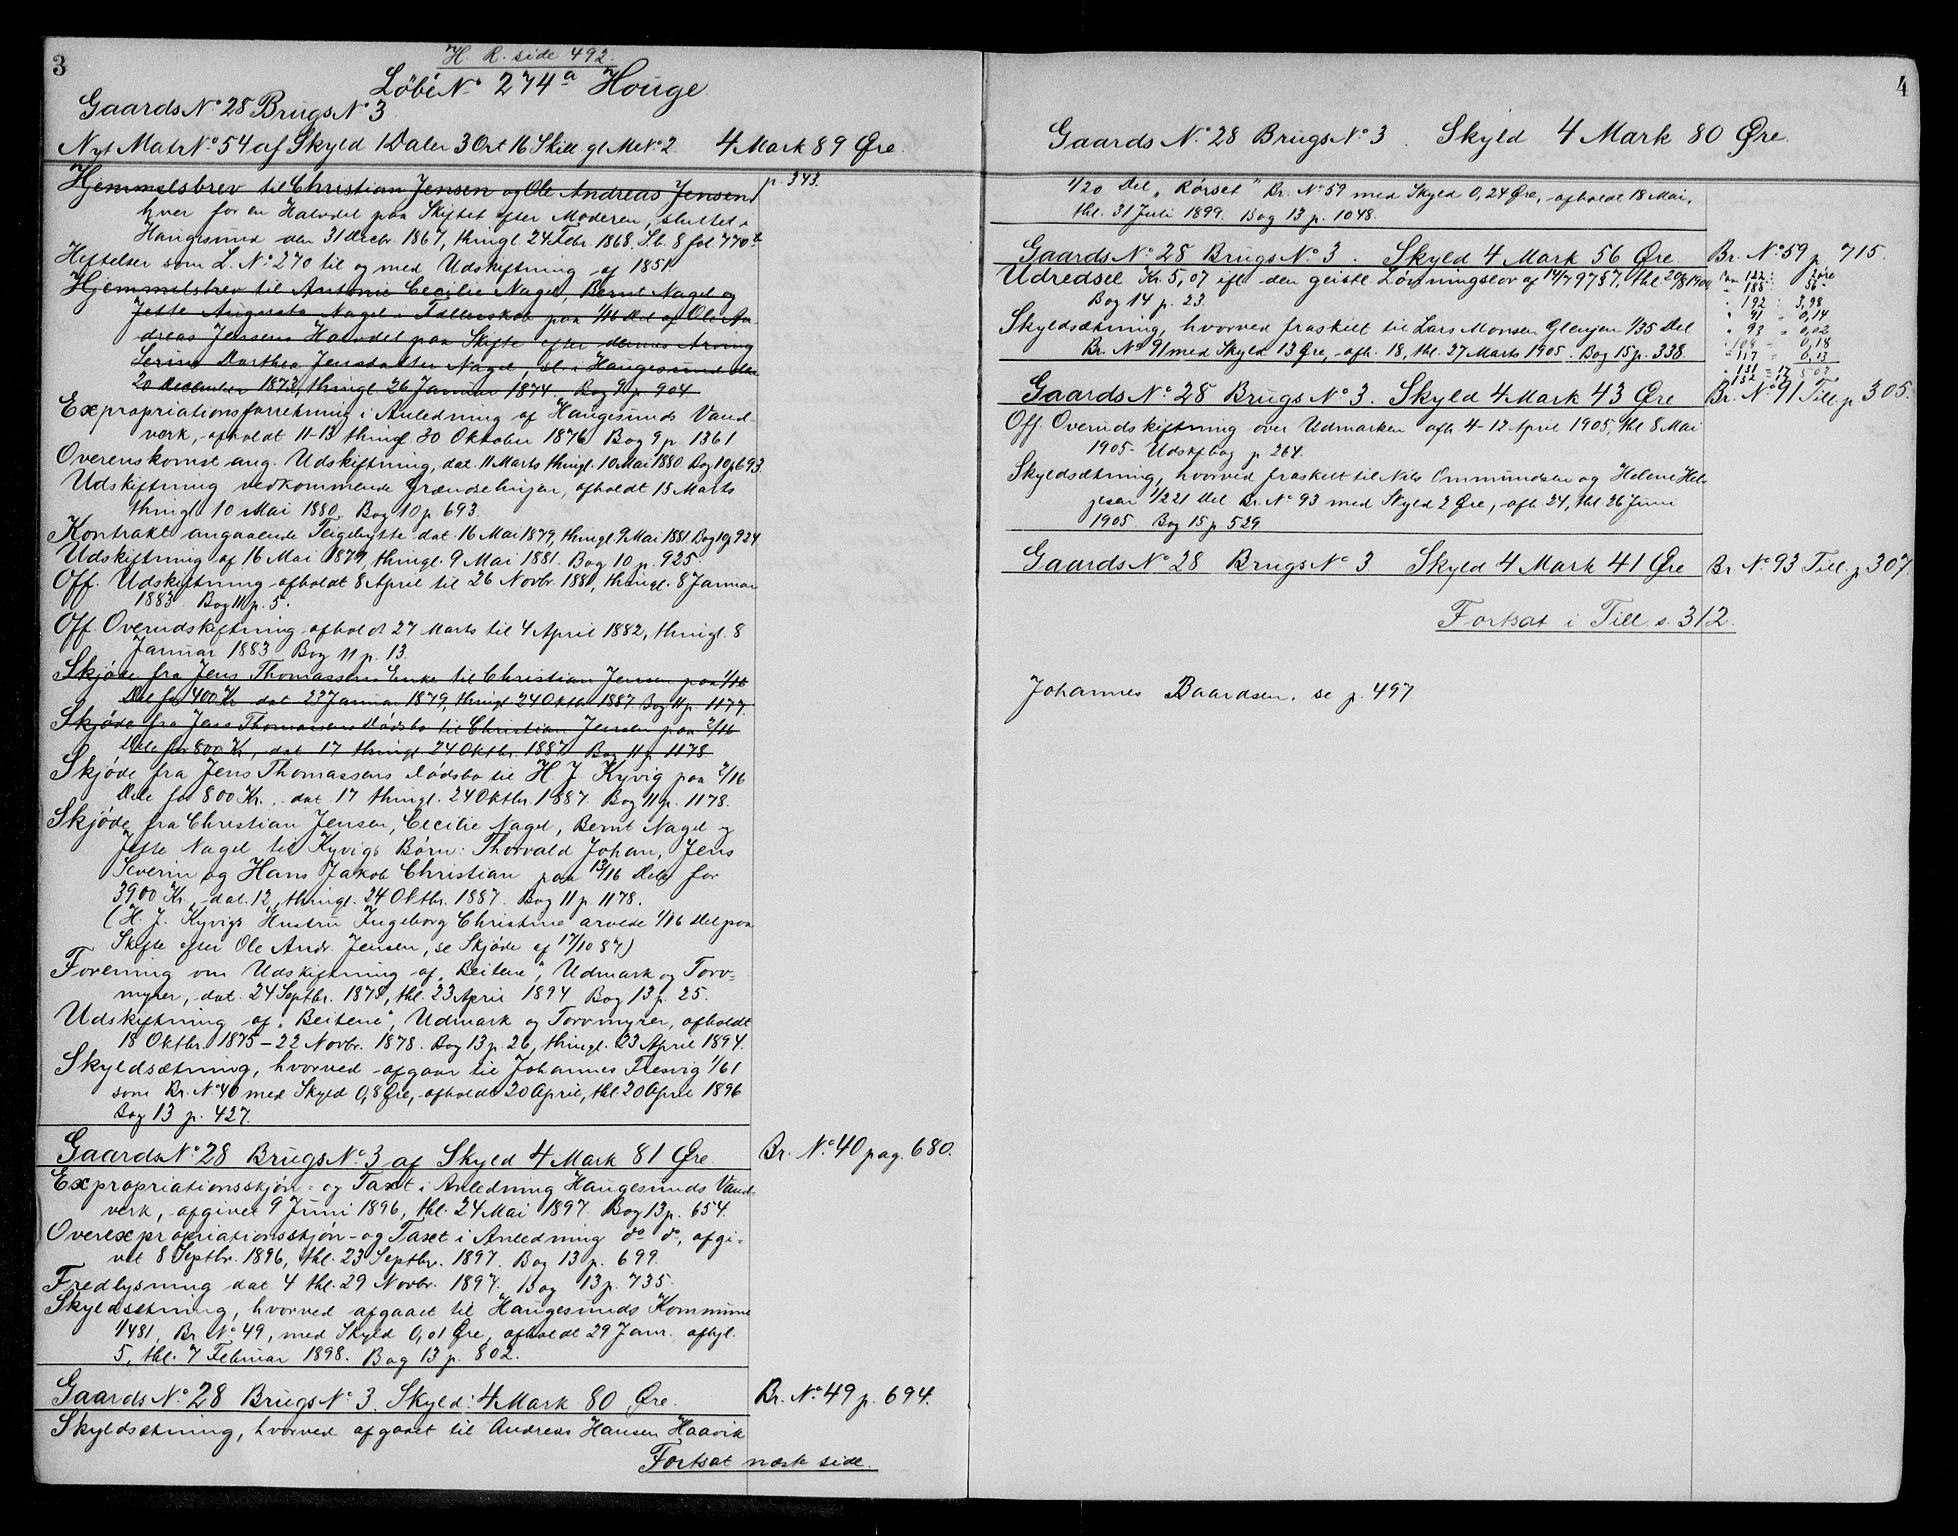 3
H. R. side 492.
Løbe No 274a Houge
Gaards No 28 Brugs No 3.
Nyt Matr No 54 af Skyld 1 Daler 3 Ort 16 Skill. gl M No 2. 4 Mark 89 Øre.
Hjemmelsbrev til Christian Jensen og Ole Andreas Jensen p. 343.
hver for en Halvdel paa Skiftet efter Moderen, sluttet i
Haugesund den 31 Decbr. 1867, thingl. 24 Febr. 1868. P.b. 8 fol 770 b
Heftelser som L. No 270 til og med Udskiftning af 1851
Hjemmelsbrev til Antonie Cecilie Nagel, Bernt Nagel og
Jette Augusta Nagel i Fællesskab paa 1/16 Del af Ole An-
dreas Jensens Halvdel paa Skifte efter dennes Arving
Serine Dorthea Jensdatter Nagel, sl. i Haugesund den
20 December 1873, thingl. 26 Januar 1874. Bog 9 p. 904
Expropriationsforretning i Anledning af Haugesunds Vand-
verk, afholdt 11-13 thingl 30 Oktober 1876 Bog 9 p 1361
Overenskomst ang. Udskiftning, dat. 11 Marts thingl. 10 Mai 1880 Bog 10 p 693.
Udskiftning vedkommende Grændselinjer, afholdt 15 Marts
thingl. 10 Mai 1880. Bog 10 p. 693.
Kontrakt angaaende Teigebytte dat 16 Mai 1879, thingl 9 Mai 1881. Bog 10 p 924
Udskiftning af 16 Mai 1879, thingl. 9 Mai 1881. Bog 10 p. 925.
Off. Udskiftning afholdt 8 April til 26 Novbr. 1881, thingl. 8 Januar
1883. Bog 11 p. 5.
Off. Overudskiftning afholdt 27 Marts til 4 April 1882, thingl. 8
Januar 1883 Bog 11 p. 13.
Skjøde fra Jens Thomassens Enke til Christian Jensen paa 1/16
Del for 400 Kr. dat 23 Januar 1879, thingl 24 Oktbr 1887 Bog 11 p. 1177.
Skjøde fra Jens Thomassens Dødsbo til Christian Jensen paa 2/16
Dele for 800 Kr., dat. 17 thingl. 24 Oktbr. 1887 Bog 11 p. 1178
Skjøde fra Jens Thomassens Dødsbo til H. J. Kyvig paa 2/16
Dele for 800 Kr., dat. 17 thingl. 24 Oktbr. 1887. Bog 11 p. 1178.
Skjøde fra Christian Jensen, Cecilie Nagel, Bernt Nagel og
Jette Nagel til Kyvigs Børn: Thorvald Johan, Jens
Severin og Hans Jakob Christian paa 13/16 Dele for
3900 Kr., dat. 12, thingl. 24 Oktbr. 1887. Bog 11 p. 1178.
(H. J. Kyvigs Hustru Ingeborg Christine arvede 1/16 Del paa
Skifte efter Ole Andr. Jensen, se Skjøde af 17/10 87.)
Forening om Udskiftning af "Beitene", Udmark og Torv-
myrer, dat. 24 Septbr. 1878, thl. 23 April 1894. Bog 13 p. 25.
Udskiftning af "Beitene", Udmark og Torvmyrer, afholdt
18 Oktbr. 1875 - 22 Novbr. 1878. Bog 13 p. 26, thingl. 23 April 1894.
Skyldsætning, hvorved afgaar til Johannes Tresvig 1/61
som Br. No 40 med Skyld 0,8 Øre, afholdt 20 April, thl. 20 April 1896
Bog 13 p. 427.
Gaards No 28 Brugs No 3 af Skyld 4 Mark 81 Øre Br. No 40 pag. 680.
Expropriationsskjøn- og Taxt i Anledning Haugesunds Vand-
verk, afgivet 9 Juni 1896, thl. 24 Mai 1897. Bog 13 p. 654.
Overexpropriationsskjøn- og Taxt i Anledning do do, afgi-
vet 8 Septbr. 1896, thl. 23 Septbr. 1897. Bog 13 p. 699.
Fredlysning dat 4 thl. 29 Novbr. 1897. Bog 13 p. 735.
Skyldsætning, hvorved afgaaet til Haugesunds Kommune
1/481, Br. No 49, med Skyld 0,01 Øre, afholdt 29 Janr. afhjl.
5, thl. 7 Februar 1898. Bog 13 p. 802.
Gaards No 28 Brugs No 3. Skyld: 4 Mark 80 Øre. Br. No 49 p. 694.
Skyldsætning, hvorved afgaaet til Andreas Hansen Haavik
Fortsat næste side.
4
Gaards No 28 Brugs No 3. Skyld 4 Mark 80 Øre.
1/20 Del "Rørset" Br. No 59 med Skyld 0,24 Øre, afholdt 18 Mai,
thl. 31 Juli 1899. Bog 13 p. 1048.
Gaards No 28 Brugs No 3. Skyld 4 Mark 56 Øre Br. No 59 p 715.
Udredsel Kr. 5,07 ifl. den geistl. Lønningslov af 14/7 97 § 7, thl. 20/8 1900
Bog 14 p. 23.
Skyldsætning, hvorved fraskilt til Lars Monsen Glenjen 1/35 Del
Br. No 91 med Skyld 13 Øre, afh. 18, thl. 27 Marts 1905. Bog 15 p. 338.
122: 2 øre
188: 56 -
192: 3,98
" 91 = 0,14
" 93 = 0,02
" 108 = 0,18
" 117 = 0,13
" 131 = 17
Gaards No 28 Brugs No 3. Skyld 4 Mark 43 Øre Br. No 91 Till. p 305.
Off. Overudskiftning over Udmarken afh. 4-12 April 1905, thl 8 Mai
1905. Udskftbog p 264.
Skyldsætning, hvorved fraskilt til Nils Ommundsen og Helene Hel-
gesen 1/221 Del Br. No 93 med Skyld 2 Øre, afh. 24, thl 26 Juni
1905. Bog 15 p. 529
Gaards No 28 Brugs No 3 Skyld 4 Mark 41 Øre Br. No 93 Till. p 307.
Fortsat i Till s. 312.
Johannes Baardsen, se p. 497